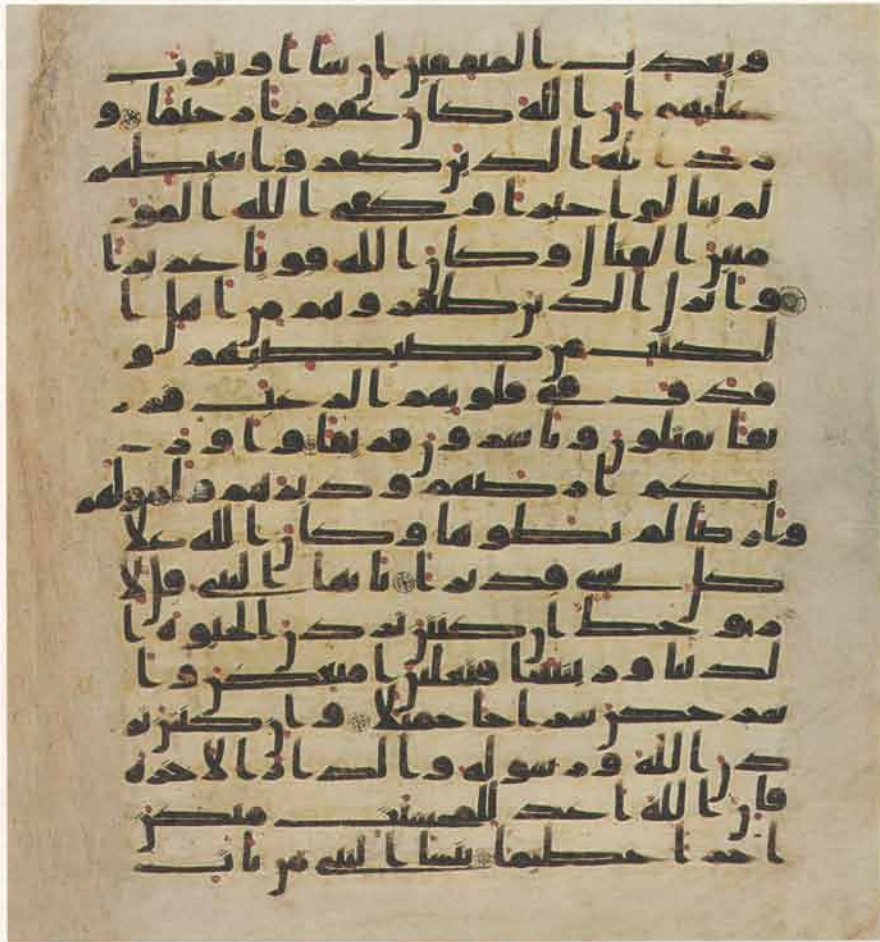 ويعذب المنفقين ان شا او يتوب
عليهم ان الله كان غفورا رحيما و
رد الله الذين كفروا بغيظهم
لم ينالوا خيرا وكفى الله المو
منين القتال وكان الله قويا عزيزا
وانزل الذين ظهروهم من اهل ا
لكتب من صياصيهم و
قذف في قلوبهم الرعب فر
يقا تقتلون وتاسرون فريقا واور
ثكم ارضهم وديرهم وامولهم
وارضا لم تطوها وكان الله علا
كل شي قديرا يايها النبي قل لا
زوجك ان كنتن تردن الحيوة ا
لدنيا وزينتها فتعلين امتعكن وا
سرحكن سراحا جميلا وان كنتن تر
دن الله ورسوله والدار الاخرة
فان الله اعد للمحسنت منكن
اجرا عظيما ينسا النبي من يات